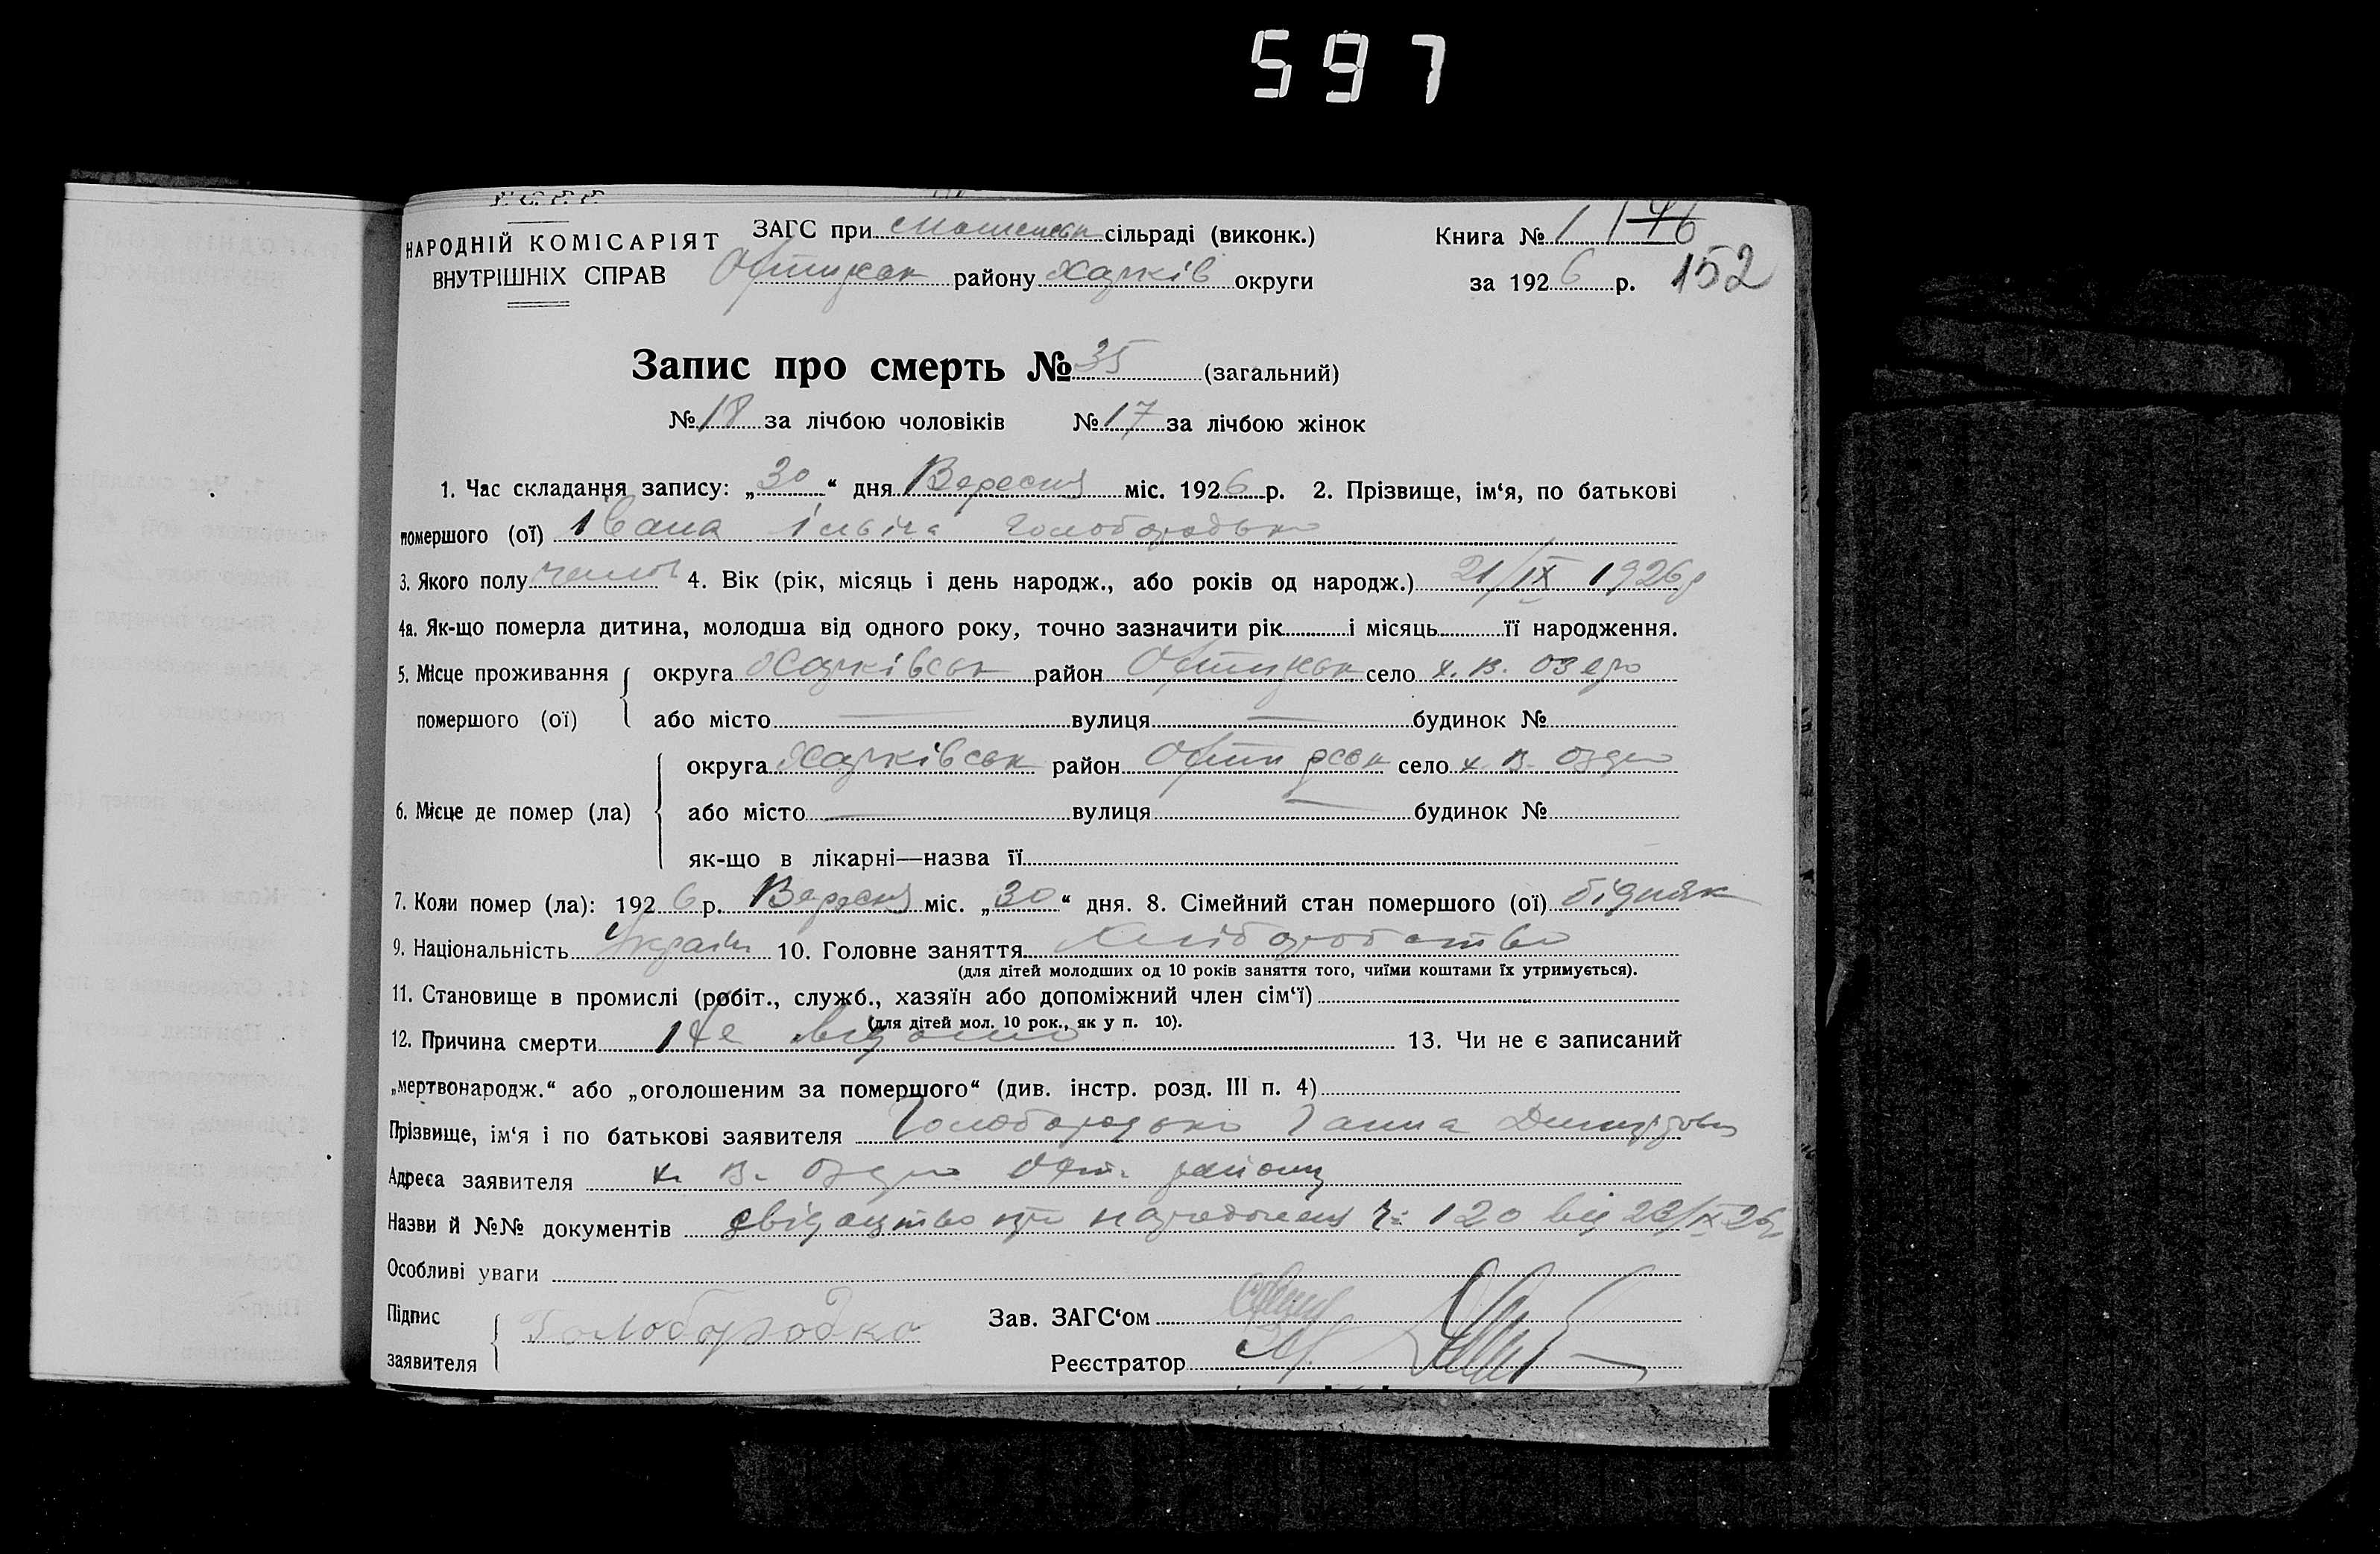 597
У.С.Р.Р.
НАРОДНІЙ КОМІСАРІЯТ
ВНУТРІШНІХ СПРАВ
ЗАГС при сільраді (виконк.)
району Харків округи
Книга № 1 146
за 1926 р. 152
Запис про смерть № 35 (загальний)
№ 18 за лічбою чоловіків № 17 за лічбою жінок
1. Час складання запису: „30“ дня Вересня міс. 1926 р. 2. Прізвище, ім‘я, по батькові
помершого (ої) Івана Ільіча Голобородько
3. Якого полу 4. Вік (рік, місяць і день народж., або років од народж.) 21/IX 1926р
4а. Як-що померла дитина, молодша від одного року, точно зазначити рік і місяць її народження.
5. Місце проживання помершого (ої)
округа Харківськ район село х. В. Озеро
або місто — вулиця — будинок №
6. Місце де помер (ла)
округа Харківськ район село х. В. Озеро
або місто — вулиця — будинок №
як-що в лікарні—назва її
7. Коли помер (ла): 1926 р. Вересня міс. „30“ дня. 8. Сімейний стан помершого (ої) бідняк
9. Національність Украін 10. Головне заняття Хліборобство
(для дітей молодших од 10 років заняття того, чиїми коштами їх утримується).
11. Становище в промислі (робіт., служб., хазяїн або допоміжний член сім‘ї)
(для дітей мол. 10 рок., як у п. 10).
12. Причина смерти Не відомо 13. Чи не є записаний
„мертвонародж.“ або „оголошеним за помершого“ (див. інстр. розд. III п. 4)
Прізвище, ім‘я і по батькові заявителя Голобородько Ганна
Адреса заявителя х. В. Озеро району
Назви й №№ документів свідоцтво про народження 120 від 23/IX 26
Особливі уваги
Підпис заявителя Голобородко
Зав. ЗАГС‘ом
Реєстратор